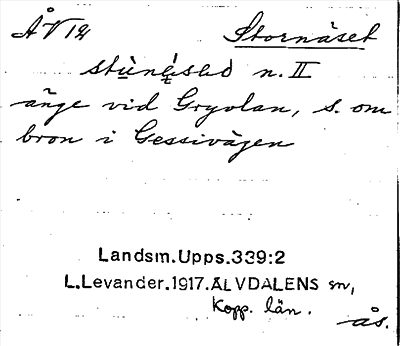 ÅV 12 Stornäset
n. II
änge vid Gryvlan, s. om
bron i Gessivägen
Landsm.Upps.339:2
L.Levander.1917.ÄLVDALENS sn,
Kopp. län.
ås.